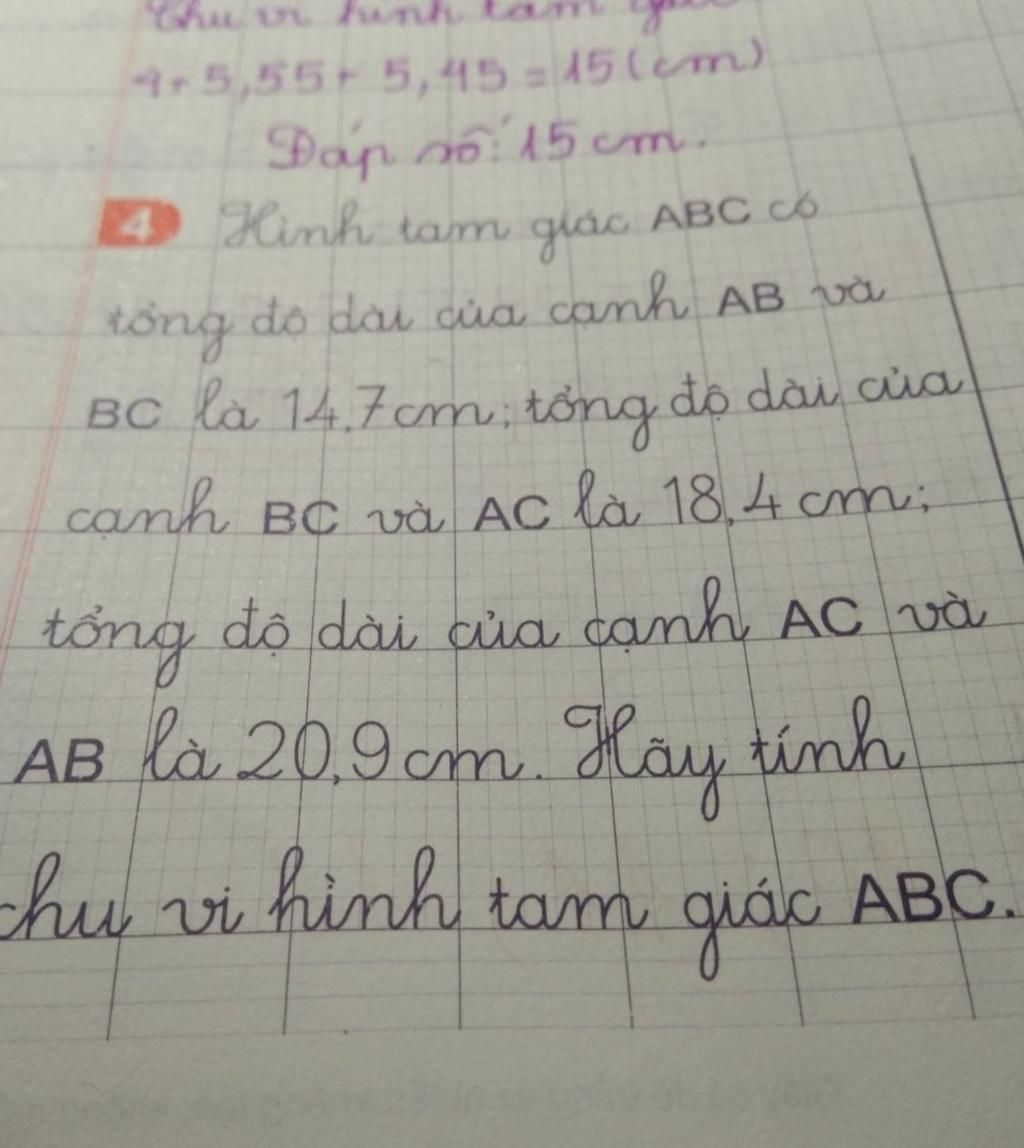 Chu vi hình tam
4+5,55+5,45=15(cm)
Đáp số: 15 cm.
4 Hình tam giác ABC có
tổng độ dài của cạnh AB và
BC là 14,7cm; tổng độ dài của
cạnh BC và AC là 18,4 cm;
tổng độ dài của cạnh AC và
AB là 20,9cm. Hãy tính
chu vi hình tam giác ABC.